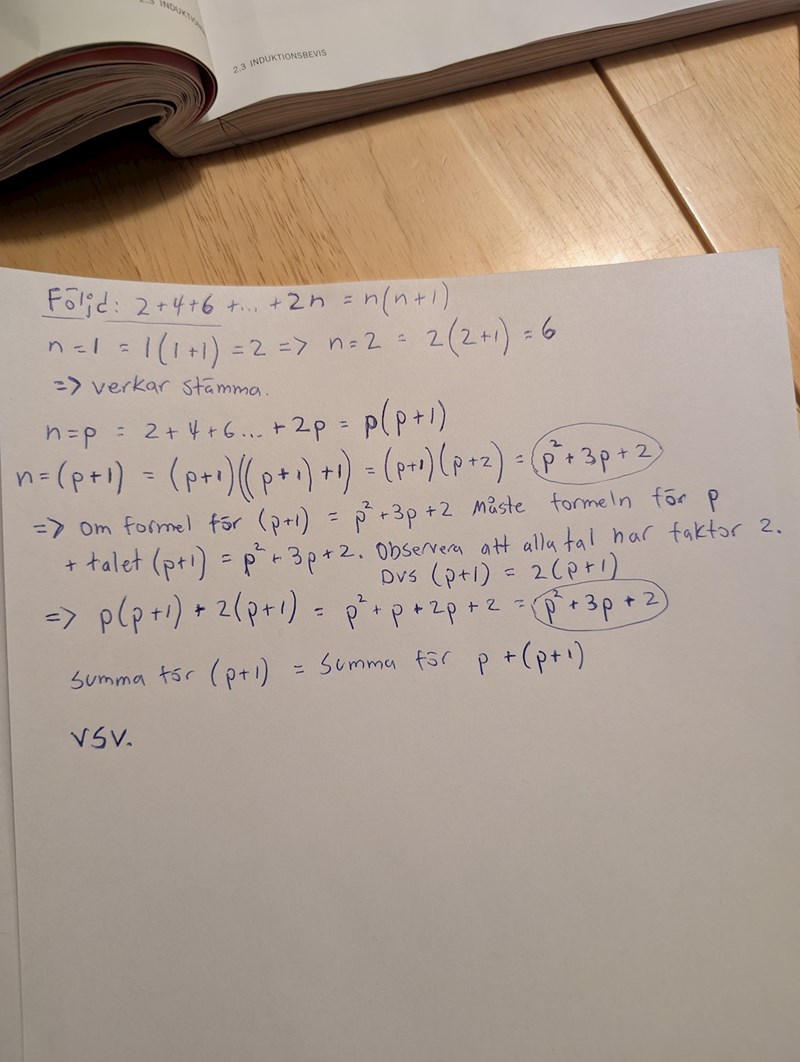 2.3 INDUKTIONSBEVIS
Följd: 2+4+6 +... +2n = n(n+1)
n=1 = 1(1+1) = 2 => n=2 = 2(2+1) = 6
=> verkar stämma.
n=p = 2+4+6... +2p = p(p+1)
n=(p+1) = (p+1)((p+1)+1) = (p+1)(p+2) = p²+3p+2
=> om formel för (p+1) = p²+3p+2 Måste formeln för p
+ talet (p+1) = p²+3p+2. Observera att alla tal har faktor 2.
Dvs (p+1) = 2(p+1)
=> p(p+1) + 2(p+1) = p²+p+2p+2 = p²+3p+2
Summa för (p+1) = Summa för p +(p+1)
VSV.